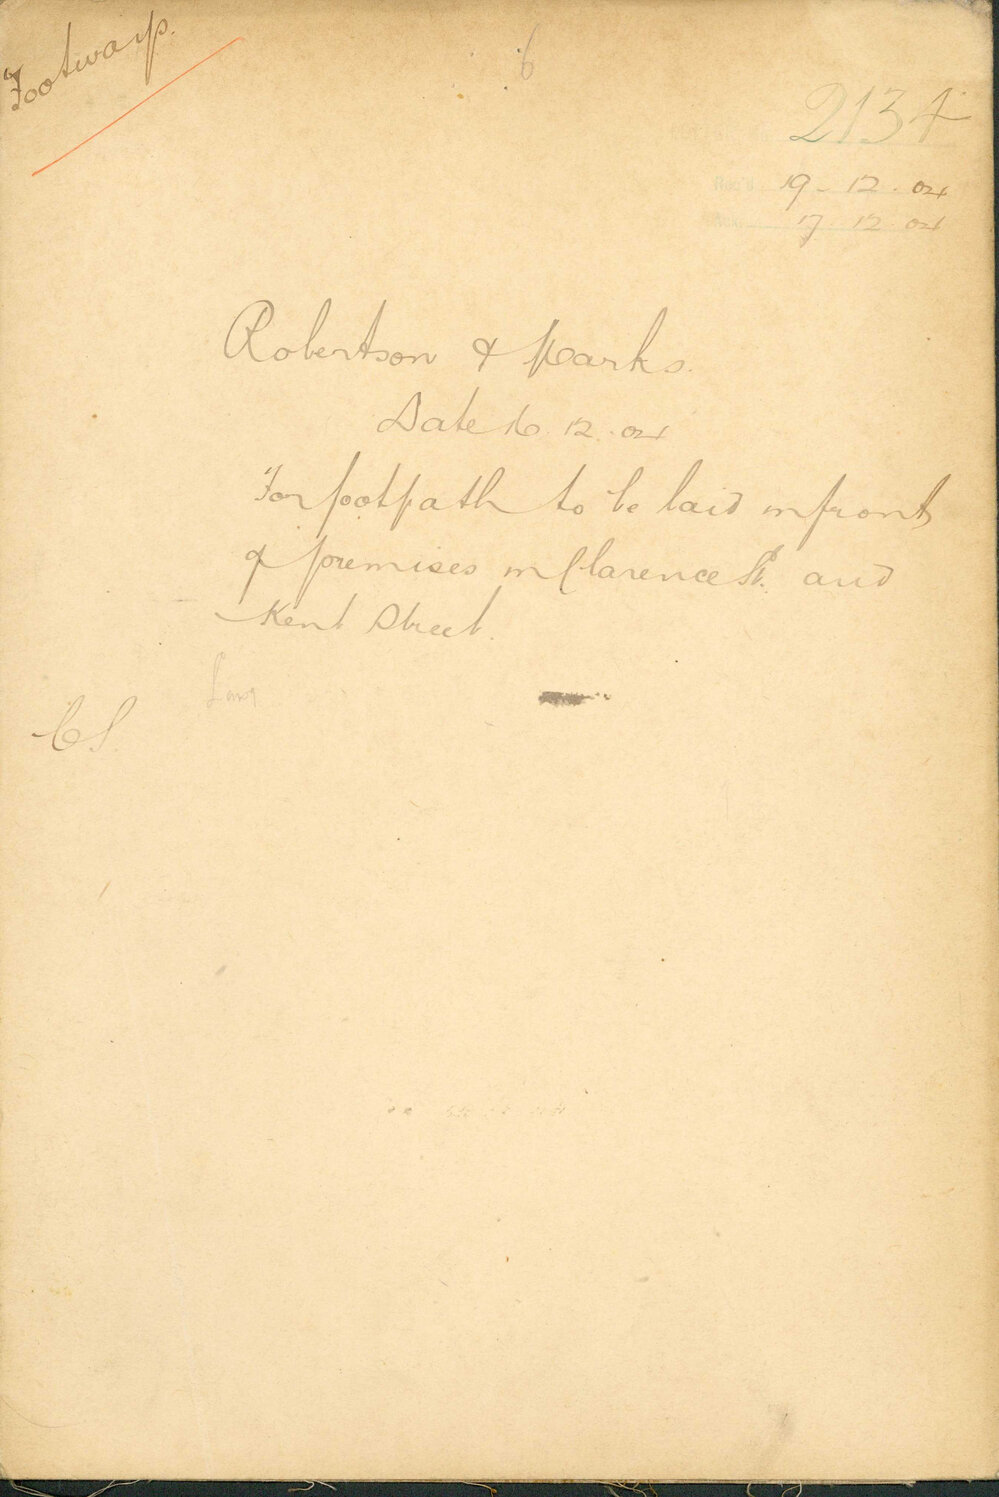 Footways.
6
2134
Rec'd 19-12.04
17.12.04
Robertson & Marks.
Date 16.12.04
For footpath to be laid in front
of premises in Clarence St. and
Kent Street.
CS.